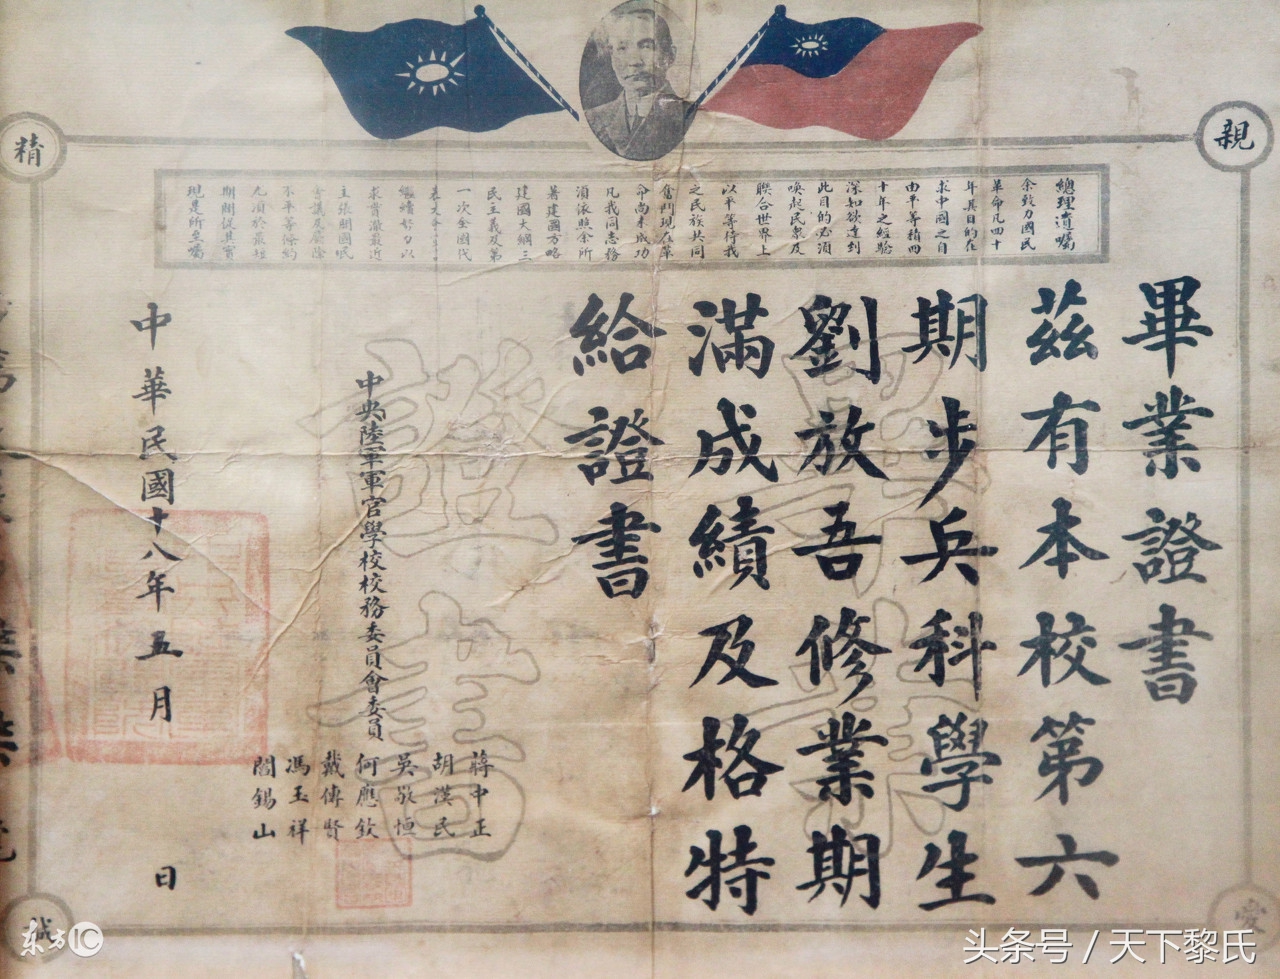 親
愛
精
誠
總理遺囑
余致力國民
革命凡四十
年其目的在
求中國之自
由平等積四
十年之經驗
深知欲達到
此目的必須
喚起民衆及
聯合世界上
以平等待我
之民族共同
奮鬥現在革
命尚未成功
凡我同志務
須依照余所
著建國方略
建國大綱三
民主義及第
一次全國代
表大會
繼續努力以
求貫澈最近
主張開國民
會議及廢除
不平等條約
尤須於最短
期間促其實
現是所至囑
畢業證書
茲有本校第六
期步兵科學生
劉放吾修業期
滿成績及格特
給證書
中央陸軍軍官學校校務委員會委員
蔣中正
胡漢民
吳敬恒
何應欽
戴傳賢
馮玉祥
閻錫山
中華民國十八年五月 日
畢業
證書
东方IC
头条号 / 天下黎氏